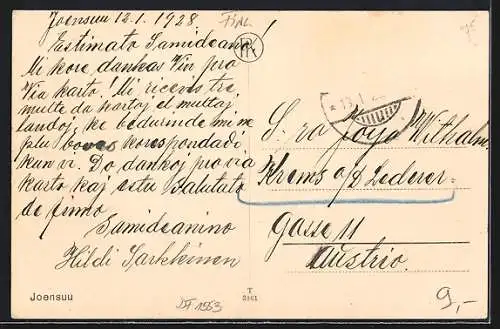 Joensuu 12.1.1928.
FINL
Estimato Samideano!
Mi kore dankas Vin pro
Via karto! Mi ricevis tre
multe da kartoj el multaj
landoj, ke bedŭrinde mi ne
plu povas korespondadi
kun vi. Do dankoj pro via
karto kaj estu salutata
de finno
Samideanino
Hildi Sarkkinen
S-ro Josef Wilhalm
Krems a/d Lederer-
gasse 11
Austrio.
Joensuu
T
3161
9,-